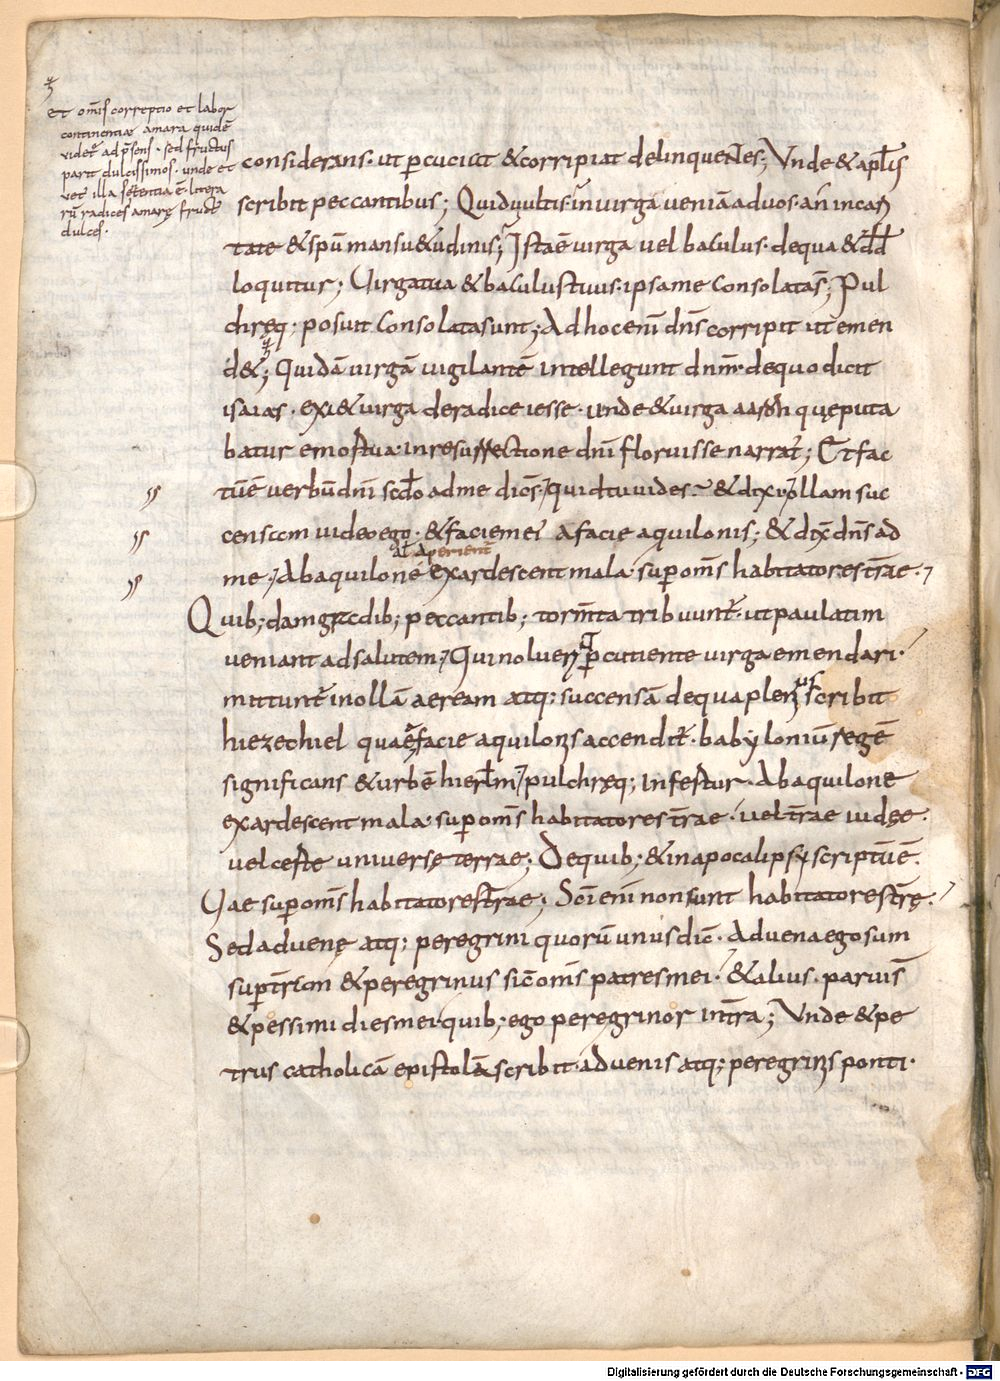 et om̄is correptio et labor
continentiae amara quidē
videt̄ ad p̄sens · sed fructus
parit dulcissimos · unde et
vet illa sētentia ē · litera
rū radices amarę fruct
dulces ·
considerans · ut p̲cuciat &corripiat delinquentes; Vnde & ap̄l̄s
scribit peccantibus; Quid vultis · in virga veniā ad vos · an̄ in cari
tate & sp̄u mansu&udinis; Ista ē virga vel baculus · de qua & d̄d̄
loquitur; Virga tua & baculus tuus · ipsa me consolata s̄; Pul
chręq · posuit consolata sunt; Ad hoc enī d̄n̄s corripit ut emen
d&; Quidā virgā vigilantē intellegunt dn̄m · de quo dicit
isaias · exi& virga de radice iesse · unde & virga aaron quę puta
batur emortua · in resurrectione dn̄i floruisse narrat̄; Et fac
tū ē verbū dn̄i sc̄do ad me dic̄s · quid tu vides · & dix̄ · ollam suc
censam video ego · & faciem eī a facie aquilonis; & dix̄ dn̄s ad
al̄ aperient̄
me · Ab aquilone exardescent mala · sup̲ om̄s habitatores t̄rae ·
Quib; dam gradib; peccantib; torm̄ta tribuunt̄ · ut paulatim
veniant ad salutem · Qui noluerint p̲cutiente virga emendari ·
mittunt̄ in ollā aeream atq; succensā de qua plenius scribit
hiezechiel quae a facie aquilonis accendit̄ · babyloniū regē
significans & urbē hierl̄m · pulchręq; infertur · Ab aquilone
exardescent mala · sup̲ om̄s habitatores t̄rae · vel t̄rae iudęę ·
vel certe universę terrae; De quib; & in apocalipsi scriptū ē ·
Vae sup̲ om̄s habitatores t̄rae; Sc̄i enī non sunt habitatores t̄rę ·
Sed advenę atq; peregrini quorū unus dic̄ · Advena ego sum
sup̲ t̄ram & peregrinus sic̄ om̄s patres mei · & alius · parvi s̄
& pessimi dies mei quib; ego peregrinor in t̄ra; Vnde & pe
trus catholicā epistolā scribit · advenis atq; peregrinis ponti ·
Digitalisierung gefördert durch die Deutsche Forschungsgemeinschaft - DFG